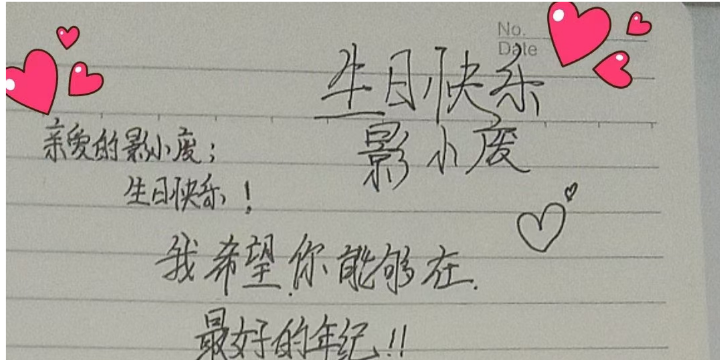 No.
Date
生日快乐
影小废
亲爱的影小废：
生日快乐！
我希望你能够在
最好的年纪!!